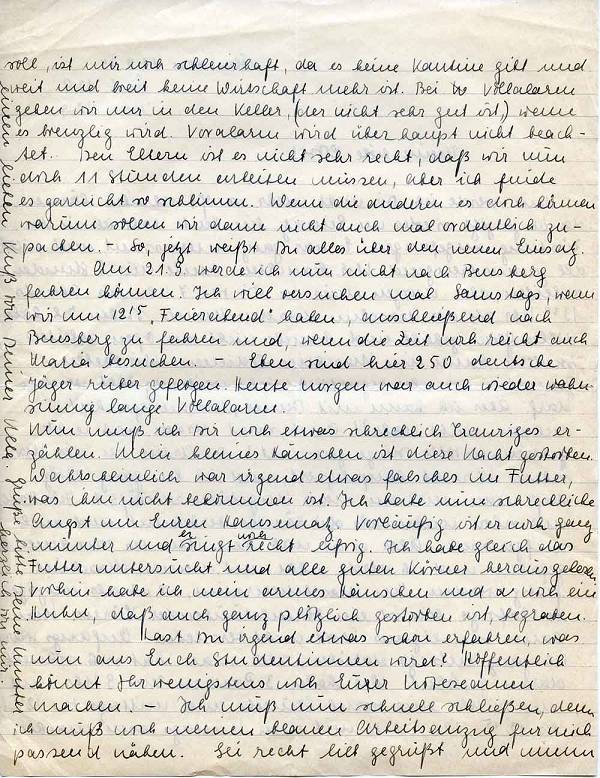 soll, ist mir noch schleierhaft, da es keine Kantine gibt und
weit und breit keine Wirtschaft mehr ist. Bei Vollalarm
gehen wir nur in den Keller, (der nicht sehr gut ist,) wenn
es brenzlig wird. Voralarm wird überhaupt nicht beach-
tet. Den Eltern ist es nicht sehr recht, daß wir nun
doch 11 Stunden arbeiten müssen, aber ich finde
es garnicht so schlimm. Wenn die anderen es doch können
warum sollen wir dann nicht auch mal ordentlich zu-
packen. – So, jetzt weißt Du alles über den neuen Einsatz.
Am 21.9. werde ich nun nicht nach Bensberg
fahren können. Ich will versuchen mal Samstags, wenn
wir um 12¹⁵ „Feierabend" haben, anschließend nach
Bensberg zu fahren und, wenn die Zeit noch reicht auch
Maria besuchen. – Eben sind hier 250 deutsche
Jäger rüber geflogen. Heute morgen war auch wieder wahn-
sinnig lange Vollalarm.
Nun muß ich Dir noch etwas schrecklich Trauriges er-
zählen. Mein kleines Hänschen ist diese Nacht gestorben.
Wahrscheinlich war irgend etwas falsches im Futter,
was ihm nicht bekommen ist. Ich habe nun schreckliche
Angst um Euren Hansematz. Vorläufig ist er noch ganz
munter und er singt noch recht eifrig. Ich habe gleich das
Futter untersucht und alle guten Körner herausgelesen.
Vorhin habe ich mein armes Hänschen und noch ein
Huhn, daß auch ganz plötzlich gestorben ist, begraben.
Hast Du irgend etwas schon erfahren, was
nun aus Euch Studentinnen wird? Hoffentlich
könnt Ihr wenigstens noch Eurer
machen. – Ich muß nun schnell schließen, denn
ich muß noch meinen blauen Arbeitsanzug für mich
passend nähen. Sei recht lieb gegrüßt und nimm
einen lieben Kuß von Deiner grüße bitte Deine Mutter
herzlich von mir.